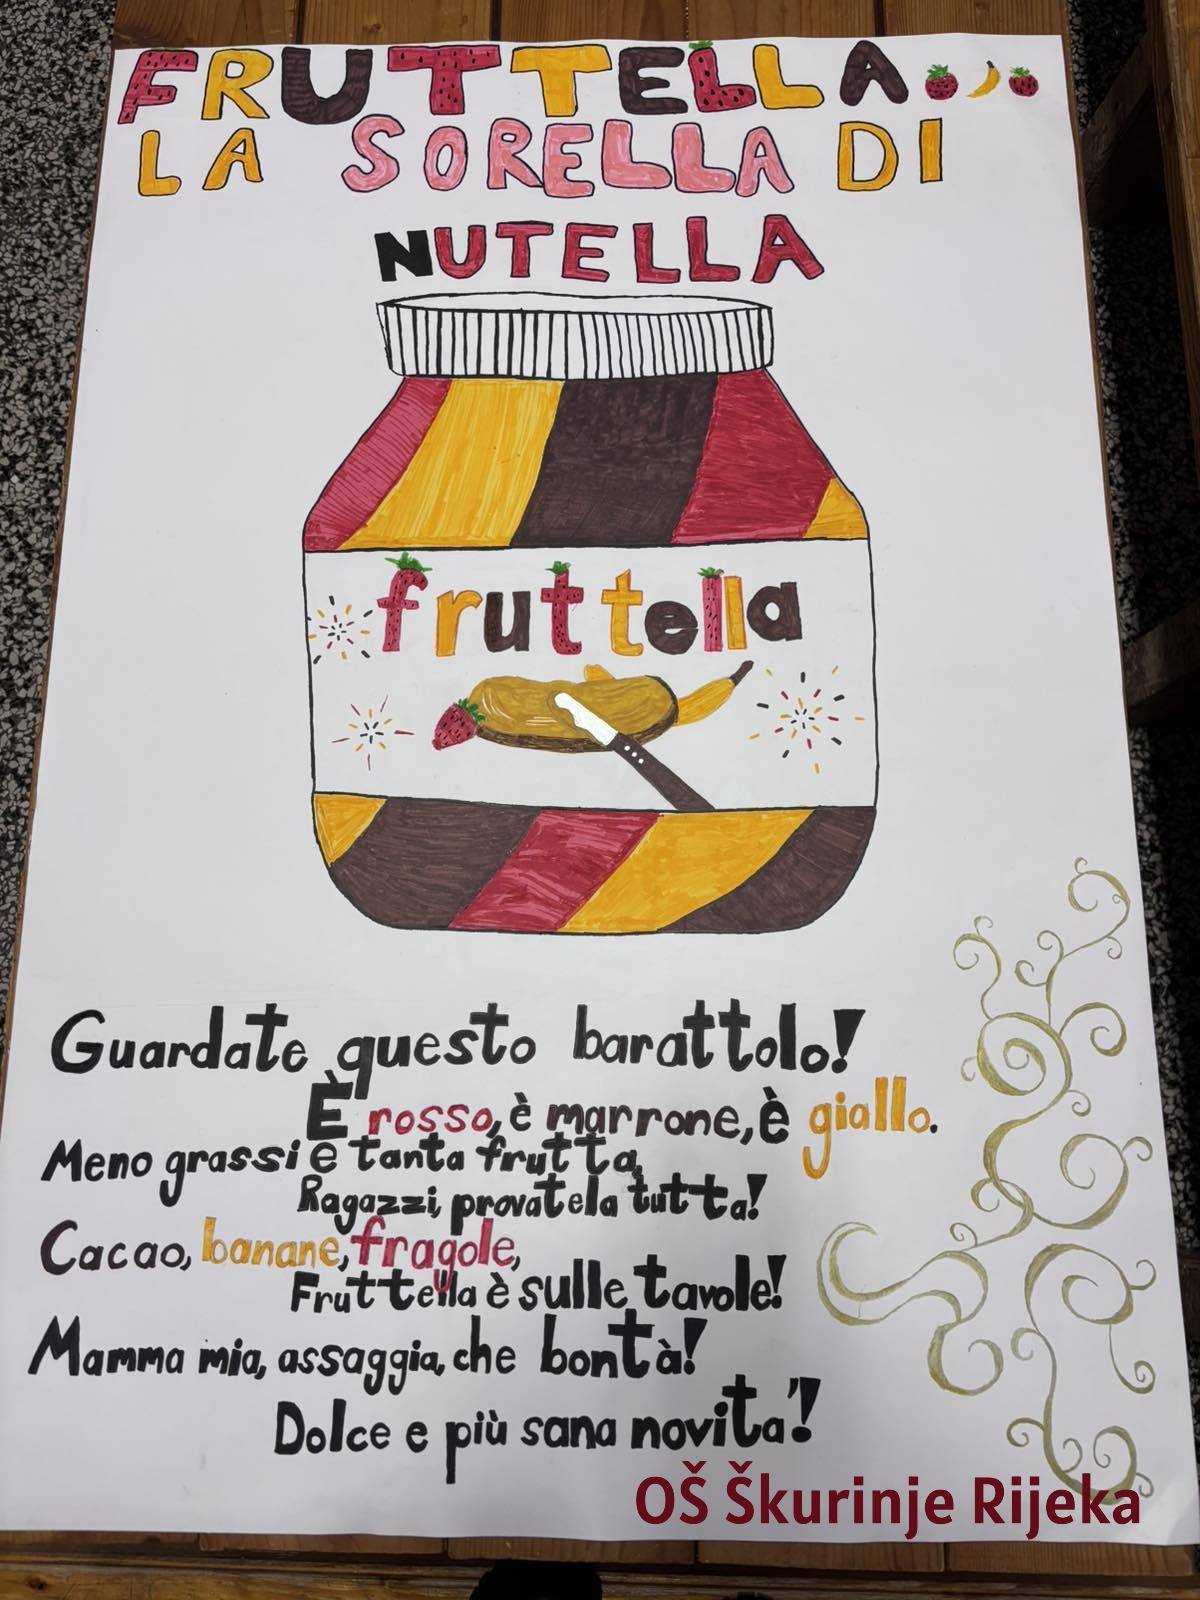 FRUTTELLA...
LA SORELLA DI
NUTELLA
fruttella
Guardate questo barattolo!
È rosso, è marrone, è giallo.
Meno grassi e tanta frutta,
Ragazzi, provatela tutta!
Cacao, banane, fragole,
Fruttella è sulle tavole!
Mamma mia, assaggia, che bontà!
Dolce e più sana novita'!
OŠ Škurinje Rijeka